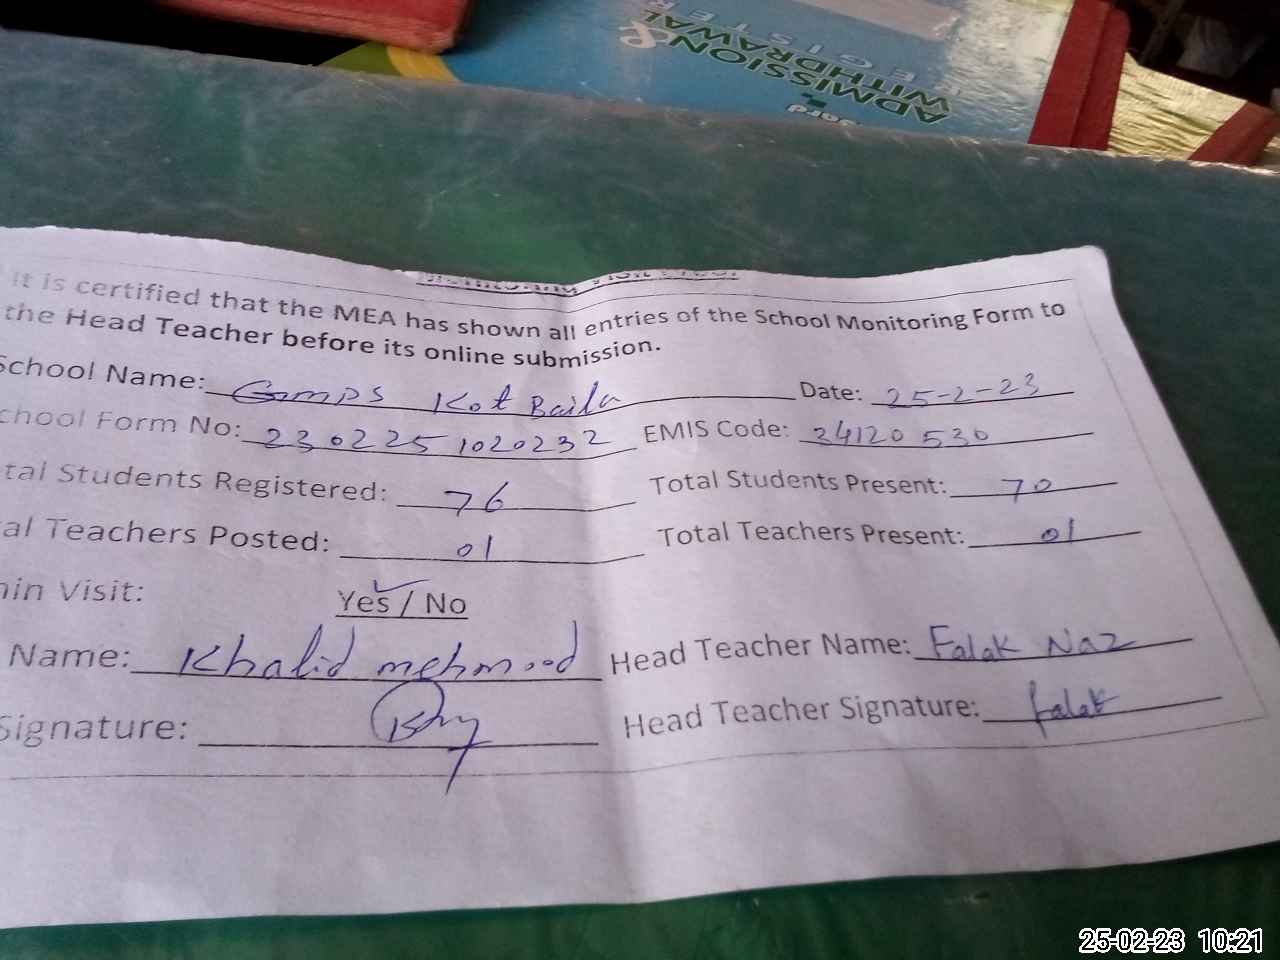 ADMISSION &
WITHDRAWAL
It is certified that the MEA has shown all entries of the School Monitoring Form to
the Head Teacher before its online submission.
School Name: GMPS Kot Baila Date: 25-2-23
chool Form No: 230225 1020232 EMIS Code: 24120530
tal Students Registered: 76 Total Students Present: 70
al Teachers Posted: 01 Total Teachers Present: 01
in Visit: Yes / No
Name: Khalid mehmood Head Teacher Name: Falak Naz
Signature: Head Teacher Signature: falak
25-02-23 10:21